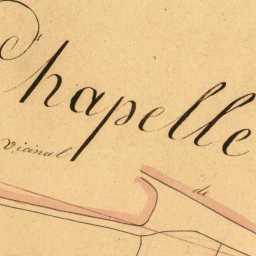 Chapelle
Vicinal
de